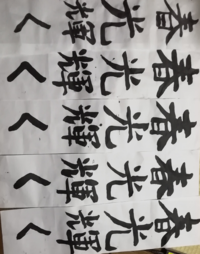 春光輝く
春光輝く
春光輝く
春光輝く
春光輝く